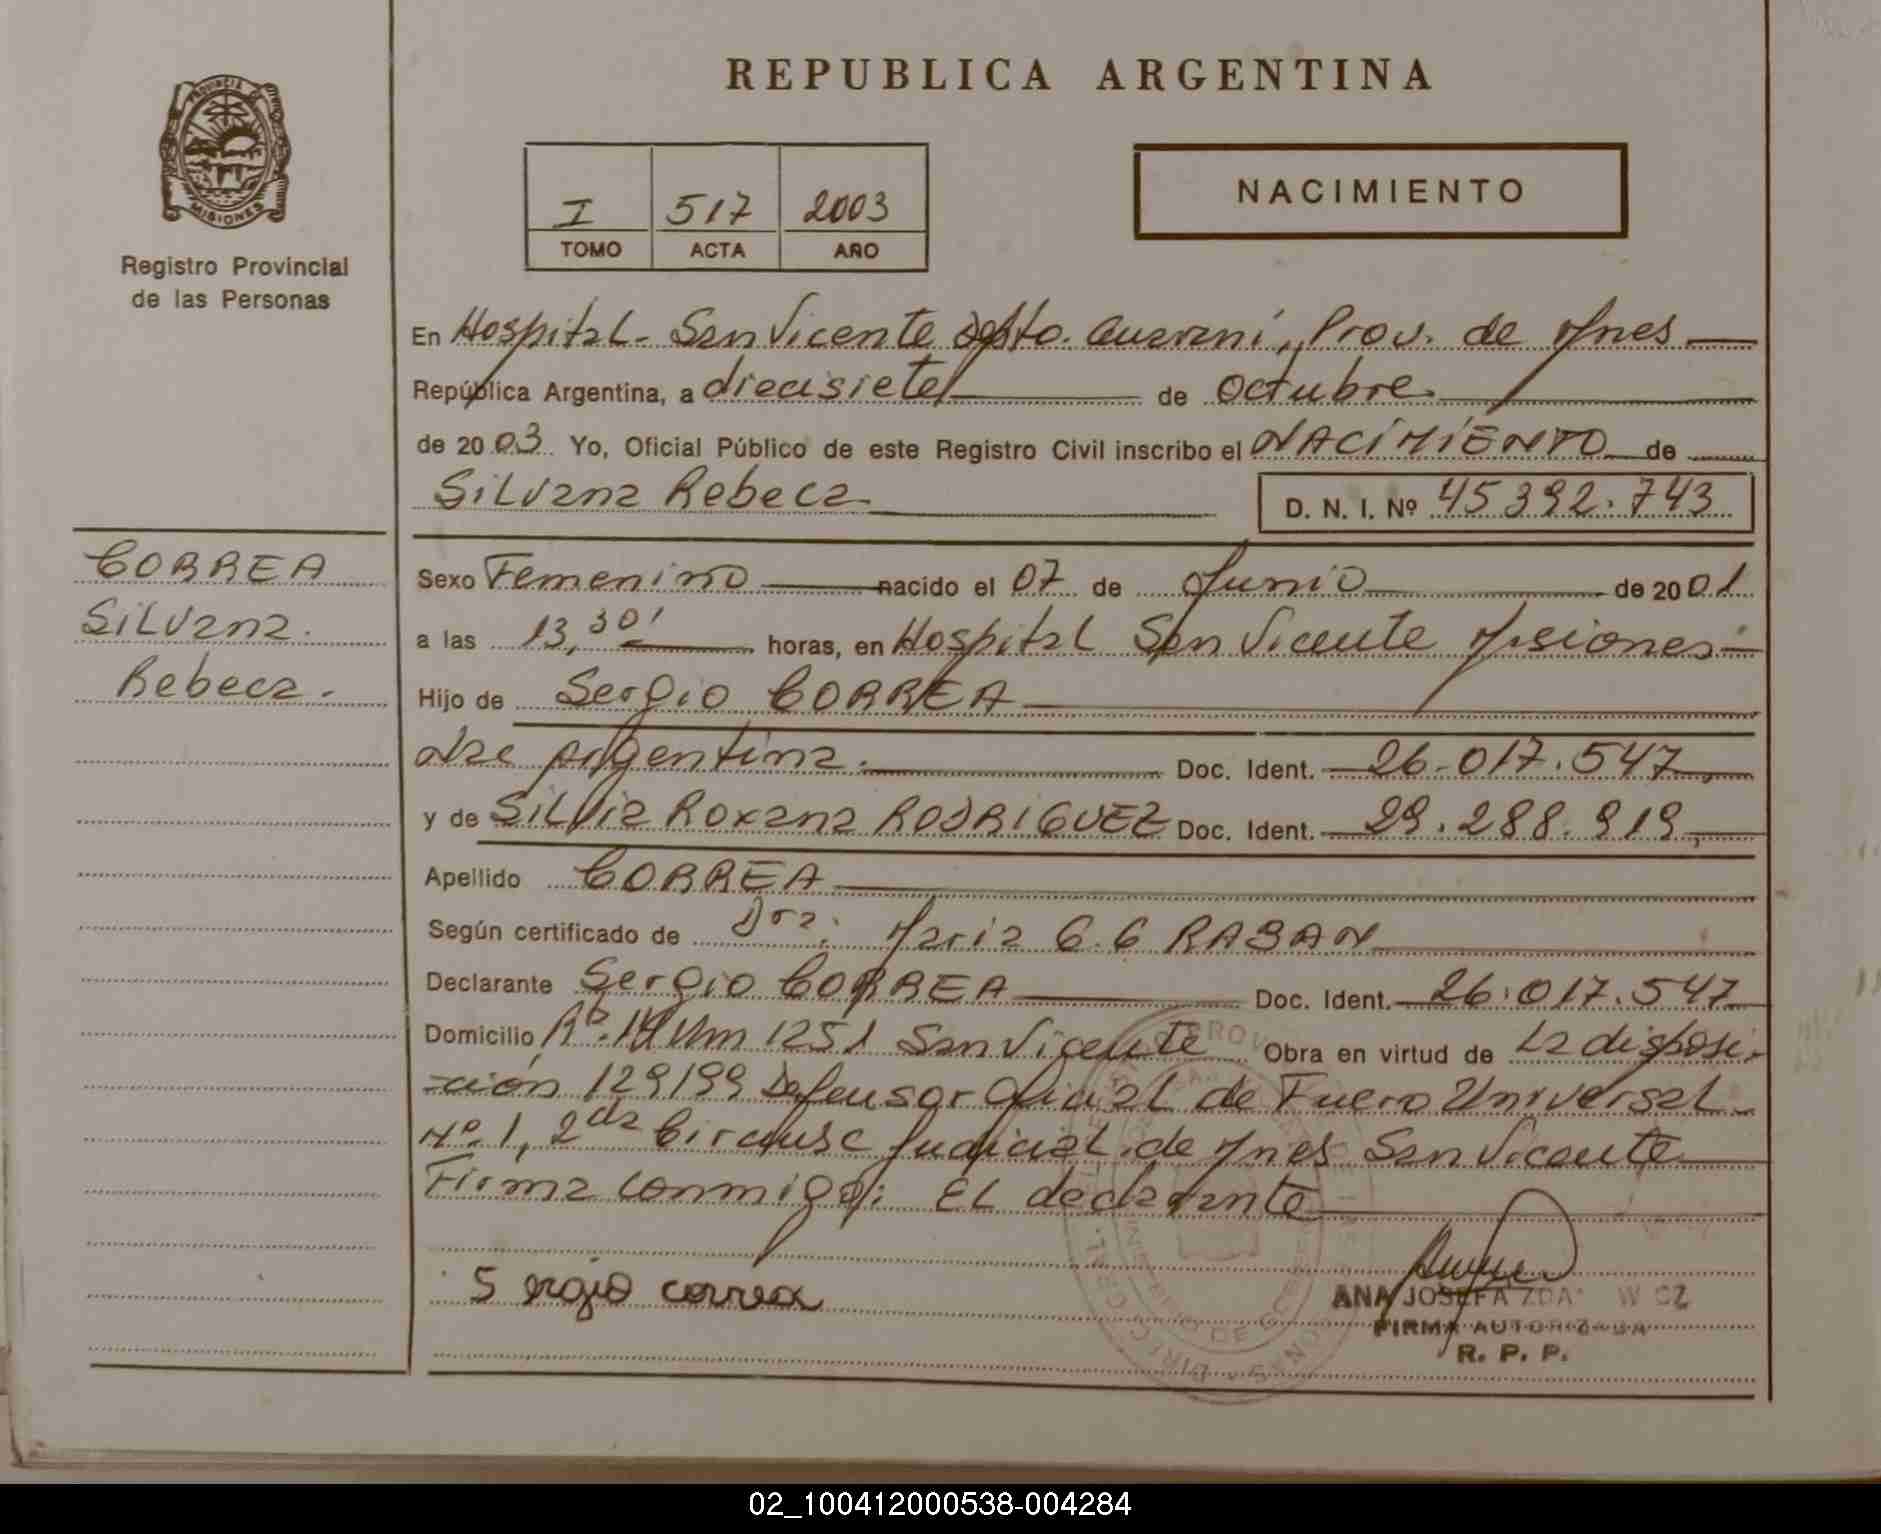 REPUBLICA ARGENTINA
PROVINCIA DE MISIONES
Registro Provincial
de las Personas
I 517 2003
TOMO ACTA AÑO
NACIMIENTO
En Hospital - San Vicente Dpto. Guaraní, Prov. de Mnes
República Argentina, a diecisiete de Octubre
de 2003. Yo, Oficial Público de este Registro Civil inscribo el NACIMIENTO de
Silvana Rebeca
D. N. I. Nº 45392.743
CORREA
Silvana
Rebeca.
Sexo Femenino nacido el 07 de Junio de 2001
a las 13,30' horas, en Hospital San Vicente Misiones
Hijo de Sergio CORREA
Nac Argentina. Doc. Ident. 26.017.547
y de Silvia Roxana RODRIGUEZ Doc. Ident. 29.288.919
Apellido CORREA
Según certificado de Dra. Maria G.G RABAN
Declarante Sergio CORREA Doc. Ident. 26.017.547
Domicilio 1251 San Vicente Obra en virtud de la disposi-
ción 129199 Defensor Oficial de Fuero Universal
Nº 1, 2da Circunsc Judicial de Mnes San Vicente
Firma conmigo: El declarante
Sergio correa
ANA JOSEFA
FIRMA AUTORIZADA
R. P. P.
02_100412000538-004284